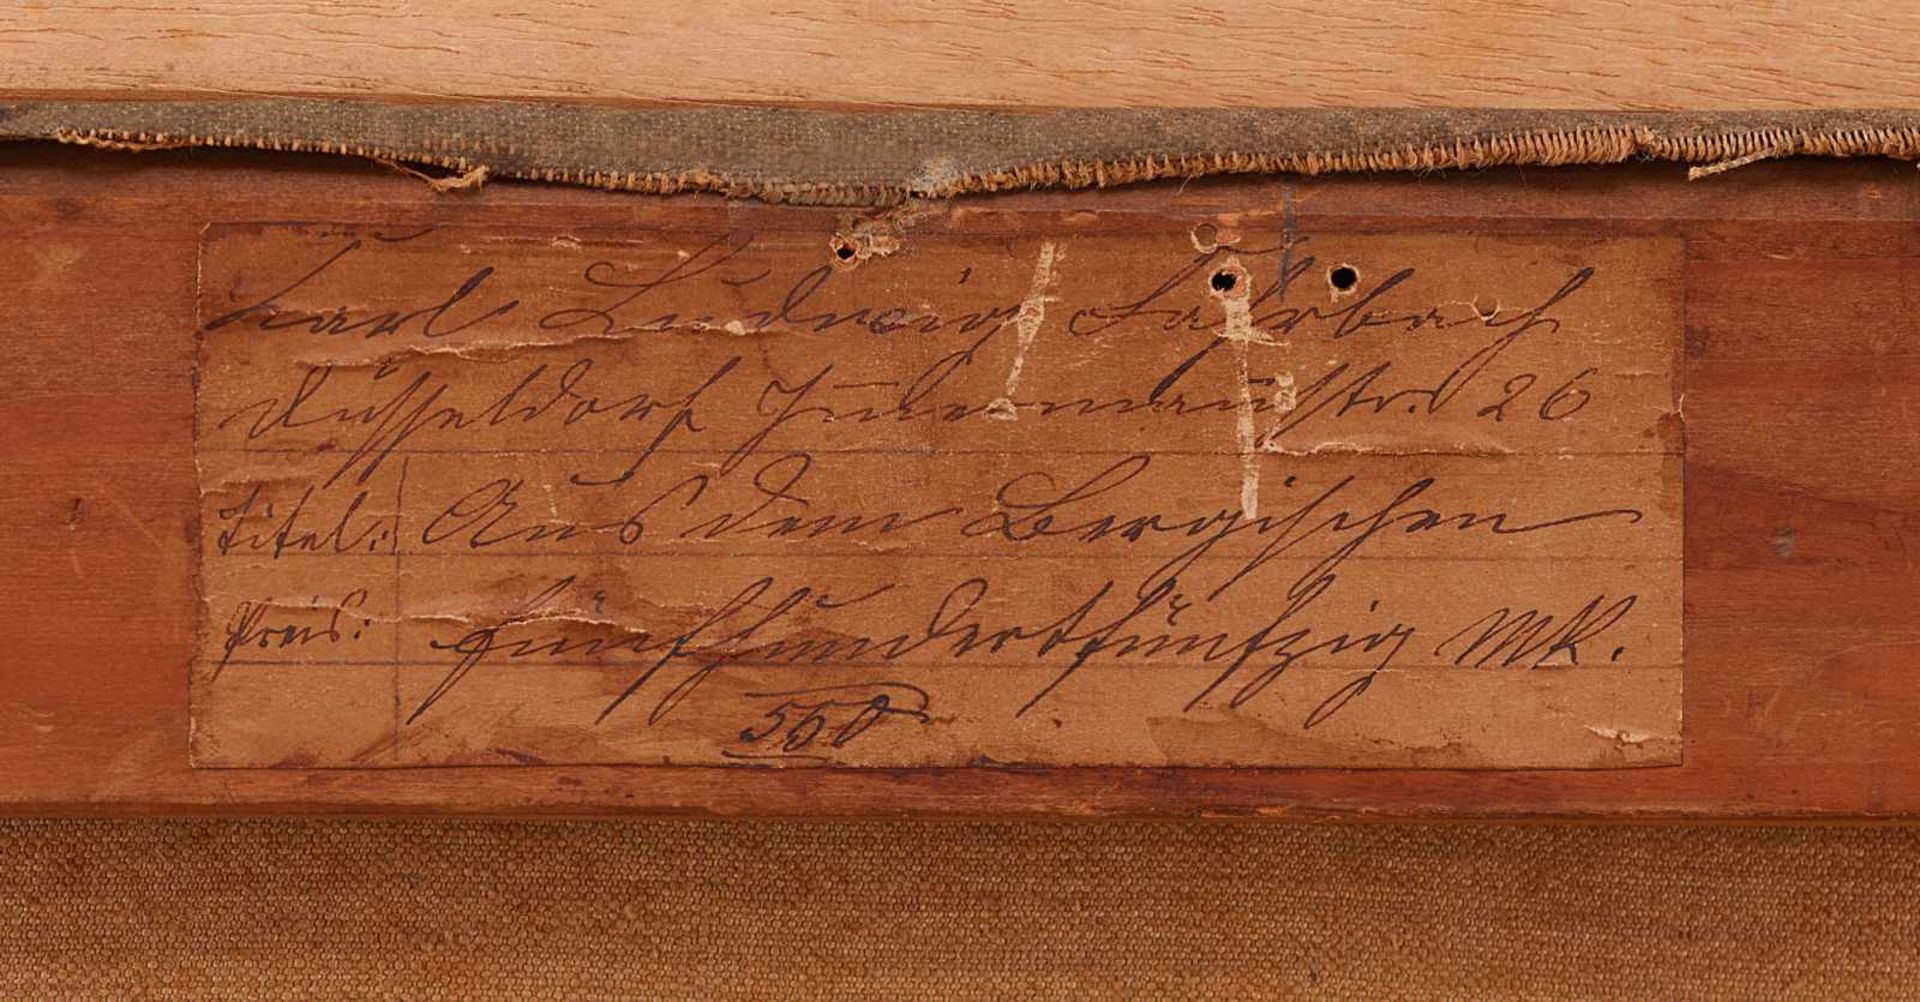 Karl Ludwig Fahrbach
Düsseldorf 26
Titel: Aus dem Bergischen
Preis: fünfhundertfünfzig MK.
550